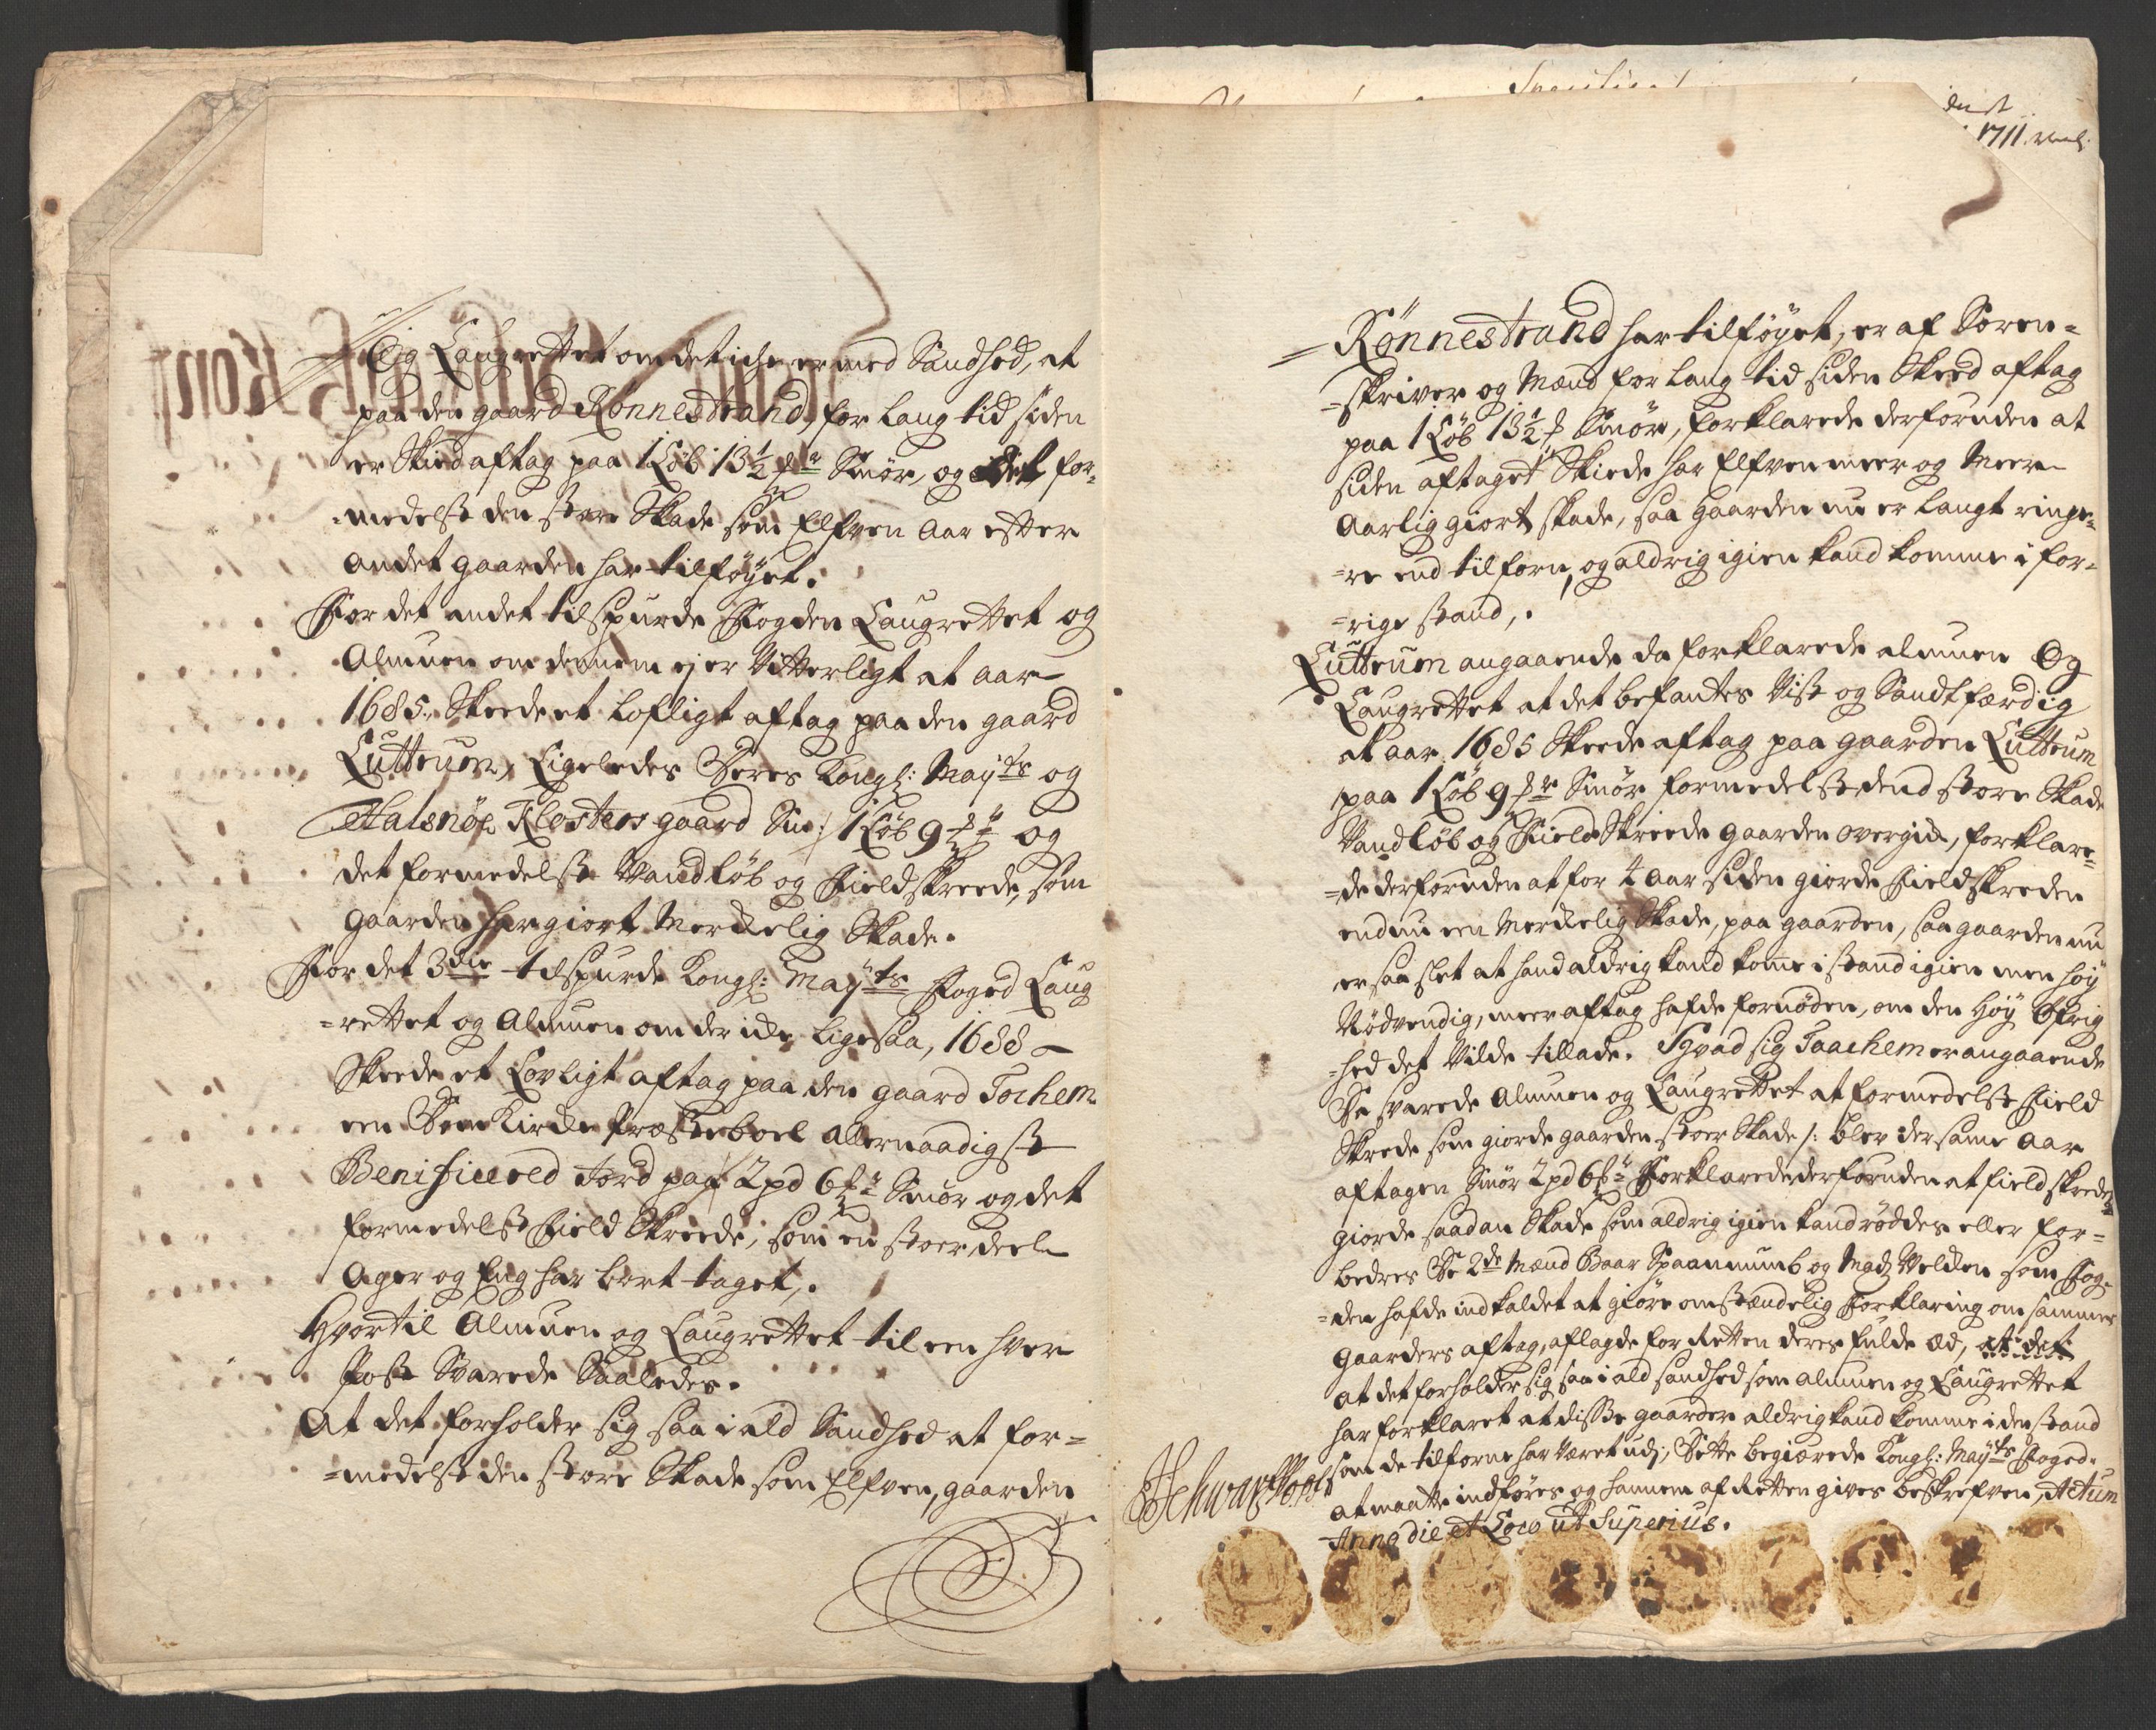 Og Laugrettet om det icke er med Sandhed, at
paa den gaard Rønnestrand, for lang tid siden
er Skied aftag paa 1 Løb 13½ Smør, og det for-
-medelst den store Skade som Elfven Aar efter
andet gaarden har tilføyet.
For det andet tilspurde Fogden Laugrettet og
Almuen om dennem ej er Vitterligt at aar
1685, Skeede et lofligt aftag paa den gaard
Lutteum, Ligeledes Kongl: Mayts og
Halsnøe Klosters gaard Sm: 1 Løb 9 og
det formedelst Vandløb og Fieldskreede, som
gaarden har giort Merckelig Skade.
For det 3die tilspurde Kongl: Mayts Foged Laug
-rettet og Almuen om der icke ligesaa, 1688
Skeede et Lovligt aftag paa den gaard Tochem
een Kircke Præsteboel allernaadigst
Benificered Jord paa 2 pd 6 Smør og det
formedelst Field Skreede, som en stoer deel
Ager og Eng har bort taget,.
Hvortil Almuen og Laugrettet til een hver
Post Svarede Saaledes.
At det forholder sig saa i ald Sandhed at for-
-medelst den store Skade som Elfven, gaarden
1711
Rønnestrand har tilføyet, er af Soren-
-skriver og Mænd for lang tid siden Skeed aftag
paa 1 Løb 13½ Smør, forklarede derforuden at
siden aftaget Skiede har Elfven meer og Meer
Aarlig giort skade, saa gaarden nu er langt ringe-
-re end tilforn, og aldrig igien kand komme i for-
-rige stand,.
Lutteum angaaende da forklarede almuen Og
Laugrettet at det befantes Vist og Sandfærdig
at aar 1685 Skeede aftag paa gaarden Lutteum
paa 1 Løb 9 Smør formedelst dend store Skade
Vandløb og Field Skreede gaarden overgick, forklare-
-de derforuden at for 4 aar siden giorde Fieldskreden
endnu een Merckelig Skade, paa gaarden, saa gaarden nu
er saa slet at hand aldrig kand kome i stand igien men høy
Nødvendig, meer aftag hafde fornøden, om den Høy Øfrig
-hed det Vilde tillade. Hvad sig Taachem er angaaende
Da svarede Almuen og Laugrettet at formedelst Field
Skrede som giorde gaarden stoer Skade /: blev der same Aar
aftagen Smør 2 pd 6 Forklarede derforuden at fieldskreden
giorde saadan Skade som aldrig igien kand røddes eller for-
bedres De 2de Mænd Baar Spaannumb og Madz Velken som Fog-
-den hafde indkaldet at giøre omstændelig forklaring om sammes
Gaarders aftag, aflagde for Retten deres fulde Æd, at det
at det forholder sig saa i ald sandhed som almuen og Laugrettet
har forklaret at disse gaarder aldrig kand komme i den stand
som de tilforne har Været udj, Dette begiærede Kongl: Mayts Foged
at maatte indføres og hannem af Retten gives beskrefven, Actum
Anno die et Loco ut Superius.